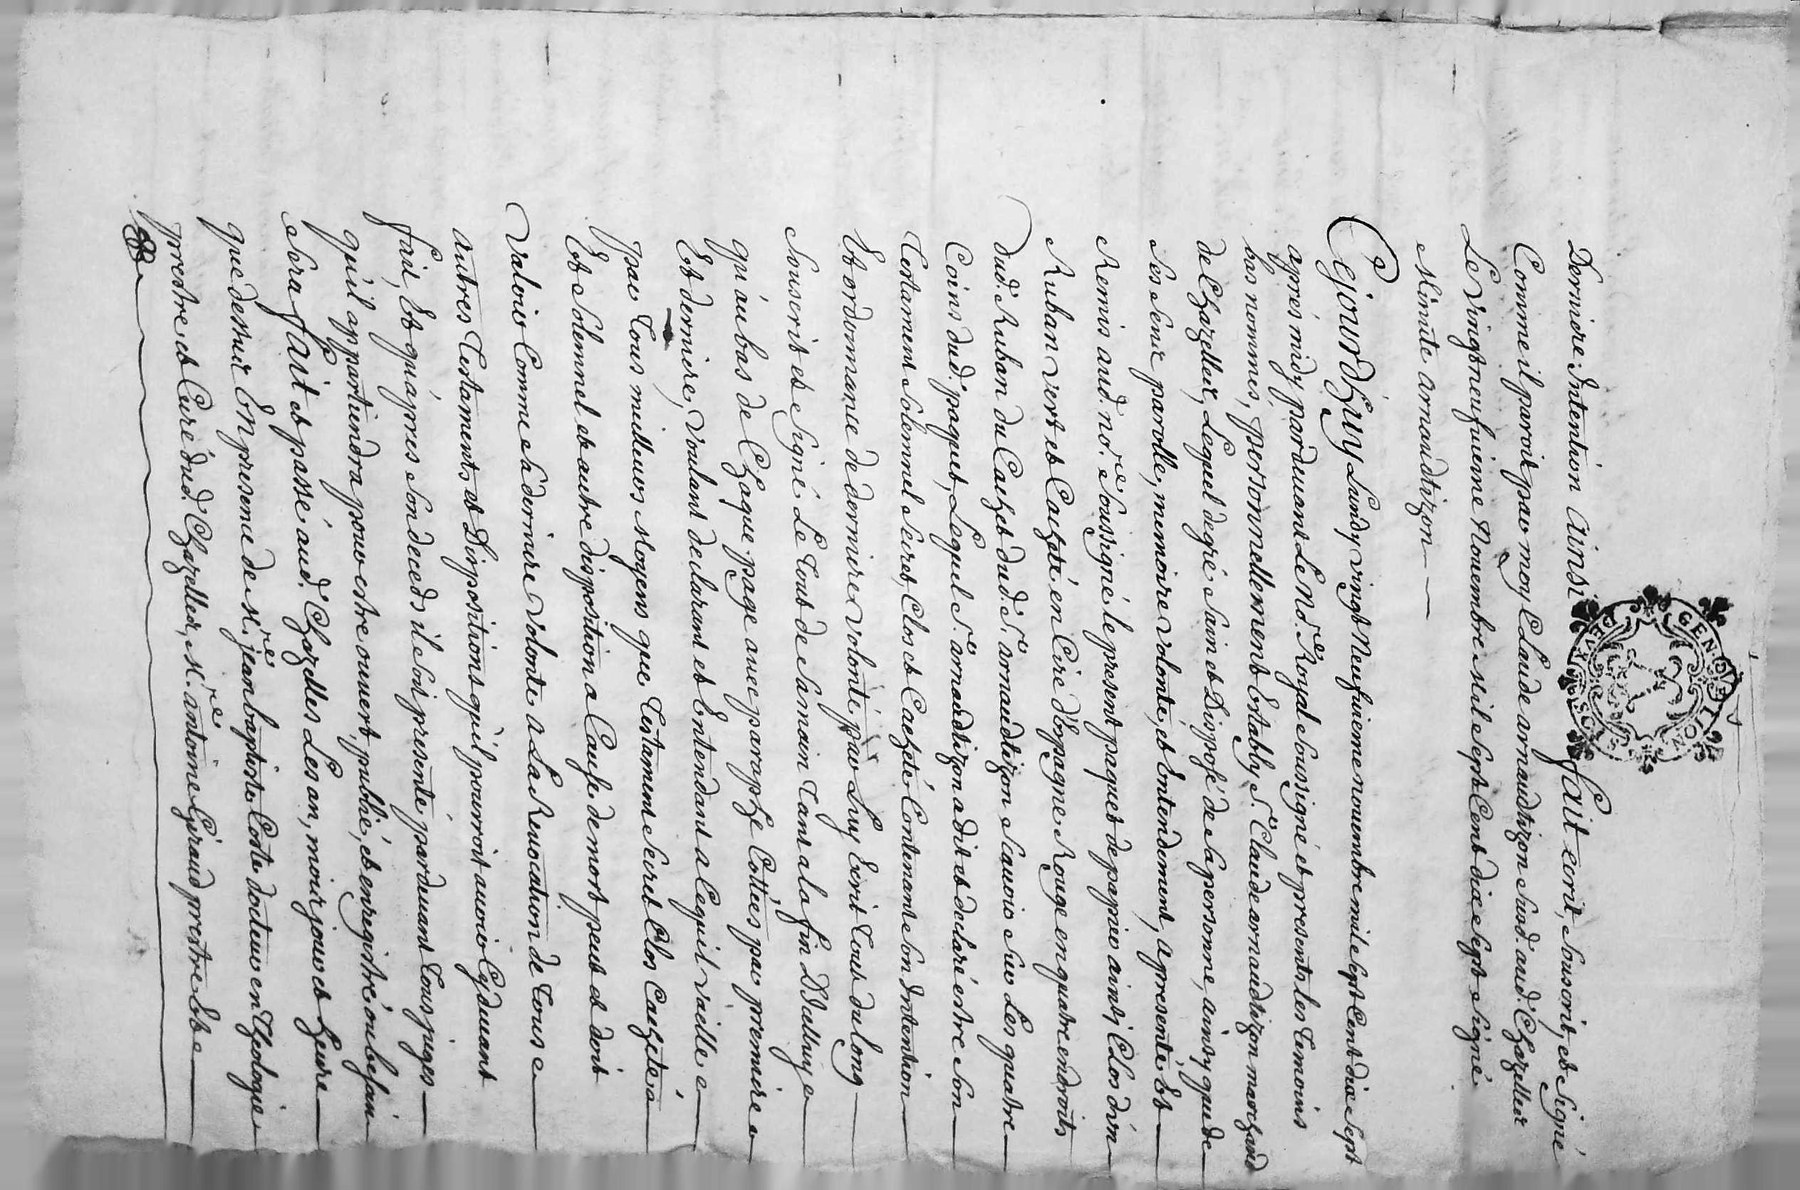 Derniere Intention ainsi fait ecrit, souscrit, et signé
Comme il paroit par moy Claude arnaudtizon susd. aud. Chazelles
Le vingt neufuieme Nouembre Mil sept Cent dix e sept signé
Minute arnaudtizon
GEN. DE LION
DEVX SOLS
Cejourdhuy Lundy vingt Neufuieme nouembre mil e sept Cent dix e sept
apres midy parduant Le no.re Royal soussigné et presents les temoins
bas nommes, personnellement Estably s.r Claude arnaudtizon marchand
de Chazelles, Lequel de gré sain et Disposé de sa personne, ainsy que de
ses sens parolle, memoire volonté, et Entendement, a presenté, Et
Remis aud. no.re soussigné le present paquet de papier ainsy Clos d'un
Ruban vert et Cacheté en Cire d'Espagne Rouge en quatre endroits
dud. Ruban du Cachet dud. s.r arnaudtizon scauoir sur Les quatre
Coins dud. paquet, Lequel s.r arnaudtizon a dit et declaré estre son
Testament solemnel secret, Clos et Cacheté Contenant son Intention
Et ordonnance de derniere volonté par Luy Ecrit tout du long
souscrit et signé Le tout de sa main tant a la fin D'Iceluy
qu'au bas de Chaque page auec paraphe Cottées par premiere
Et derniere, voulant declarant et Entendant a Ce qu'il vaille
par tous meilleurs Moyens que Testament secret Clos Cacheté
Et solemnel et autre disposition a Cause de mort peut et doit
valoir Comme sa derniere volonté a La Reuocation de tous
autres Testaments et Dispositions qu'il pourroit auoir Cyduant
fait, Et qu'apres son deceds il soit presenté parduant tous juges
qu'il appartiendra pour estre ouuert publié, et enregistré ou besoin
sera fait et passé aud. Chazelles Les an, mois jour et heure
que dessus En presence de M.re jean baptiste Coste docteur en Theologie
prestre et Curé dud. Chazelles, M.re antoine Giraud prestre